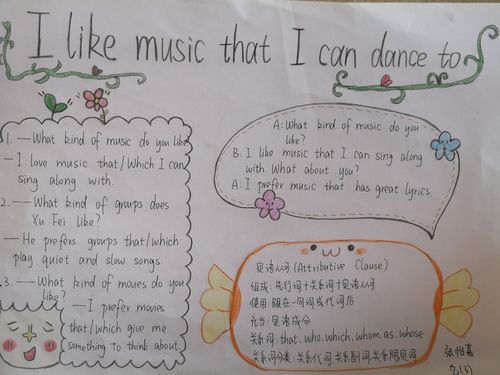 I like music that I can dance to
1. —What kind of music do you like
—I love music that/Which I can
Sing along with.
2. —What kind of groups does
Xu Fei like?
—He prefers groups that/which
play quiet and slow songs.
3. —What kind of movies do you
like?
—I prefer movies
that/which give me
something to think about.
A: What kind of music do you
like?
B: I like music that I can sing along
with. What about you?
A: I prefer music that has great lyrics.
定语从句 (Attributive Clause)
组成: 先行词+关系词+定语从句
使用: 跟在一句词或代词后
充当: 定语成分
关系词: that. who. which. whom. as. whose
关系词分类: 关系代词.关系副词.关系限定词